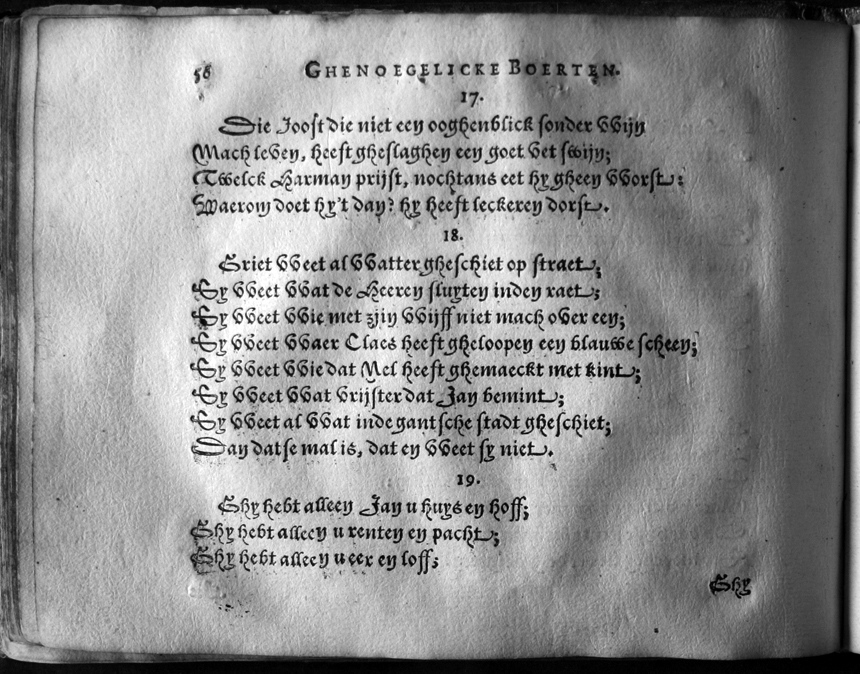 56 GHENOEGELICKE BOERTEN.
17.
Die Joost die niet een ooghenblick sonder VVijn
Mach leven, heeft gheslaghen een goet vet swijn;
Twelck Harman prijst, nochtans eet hy gheen VVorst:
Waerom doet hy't dan? hy heeft leckeren dorst.
18.
Griet VVeet al VVatter gheschiet op straet;
Sy VVeet VVat de Heeren sluyten inden raet;
Sy VVeet VVie met zijn VVijff niet mach over een;
Sy VVeet VVaer Claes heeft gheloopen een blauwe scheen;
Sy VVeet VVie dat Nel heeft ghemaeckt met kint;
Sy VVeet VVat vrijster dat Jan bemint;
Sy VVeet al VVat inde gantsche stadt gheschiet;
Dan datse mal is, dat en VVeet sy niet.
19.
Ghy hebt alleen Jan u huys en hoff;
Ghy hebt alleen u renten en pacht;
Ghy hebt alleen u eer en loff;
Ghy